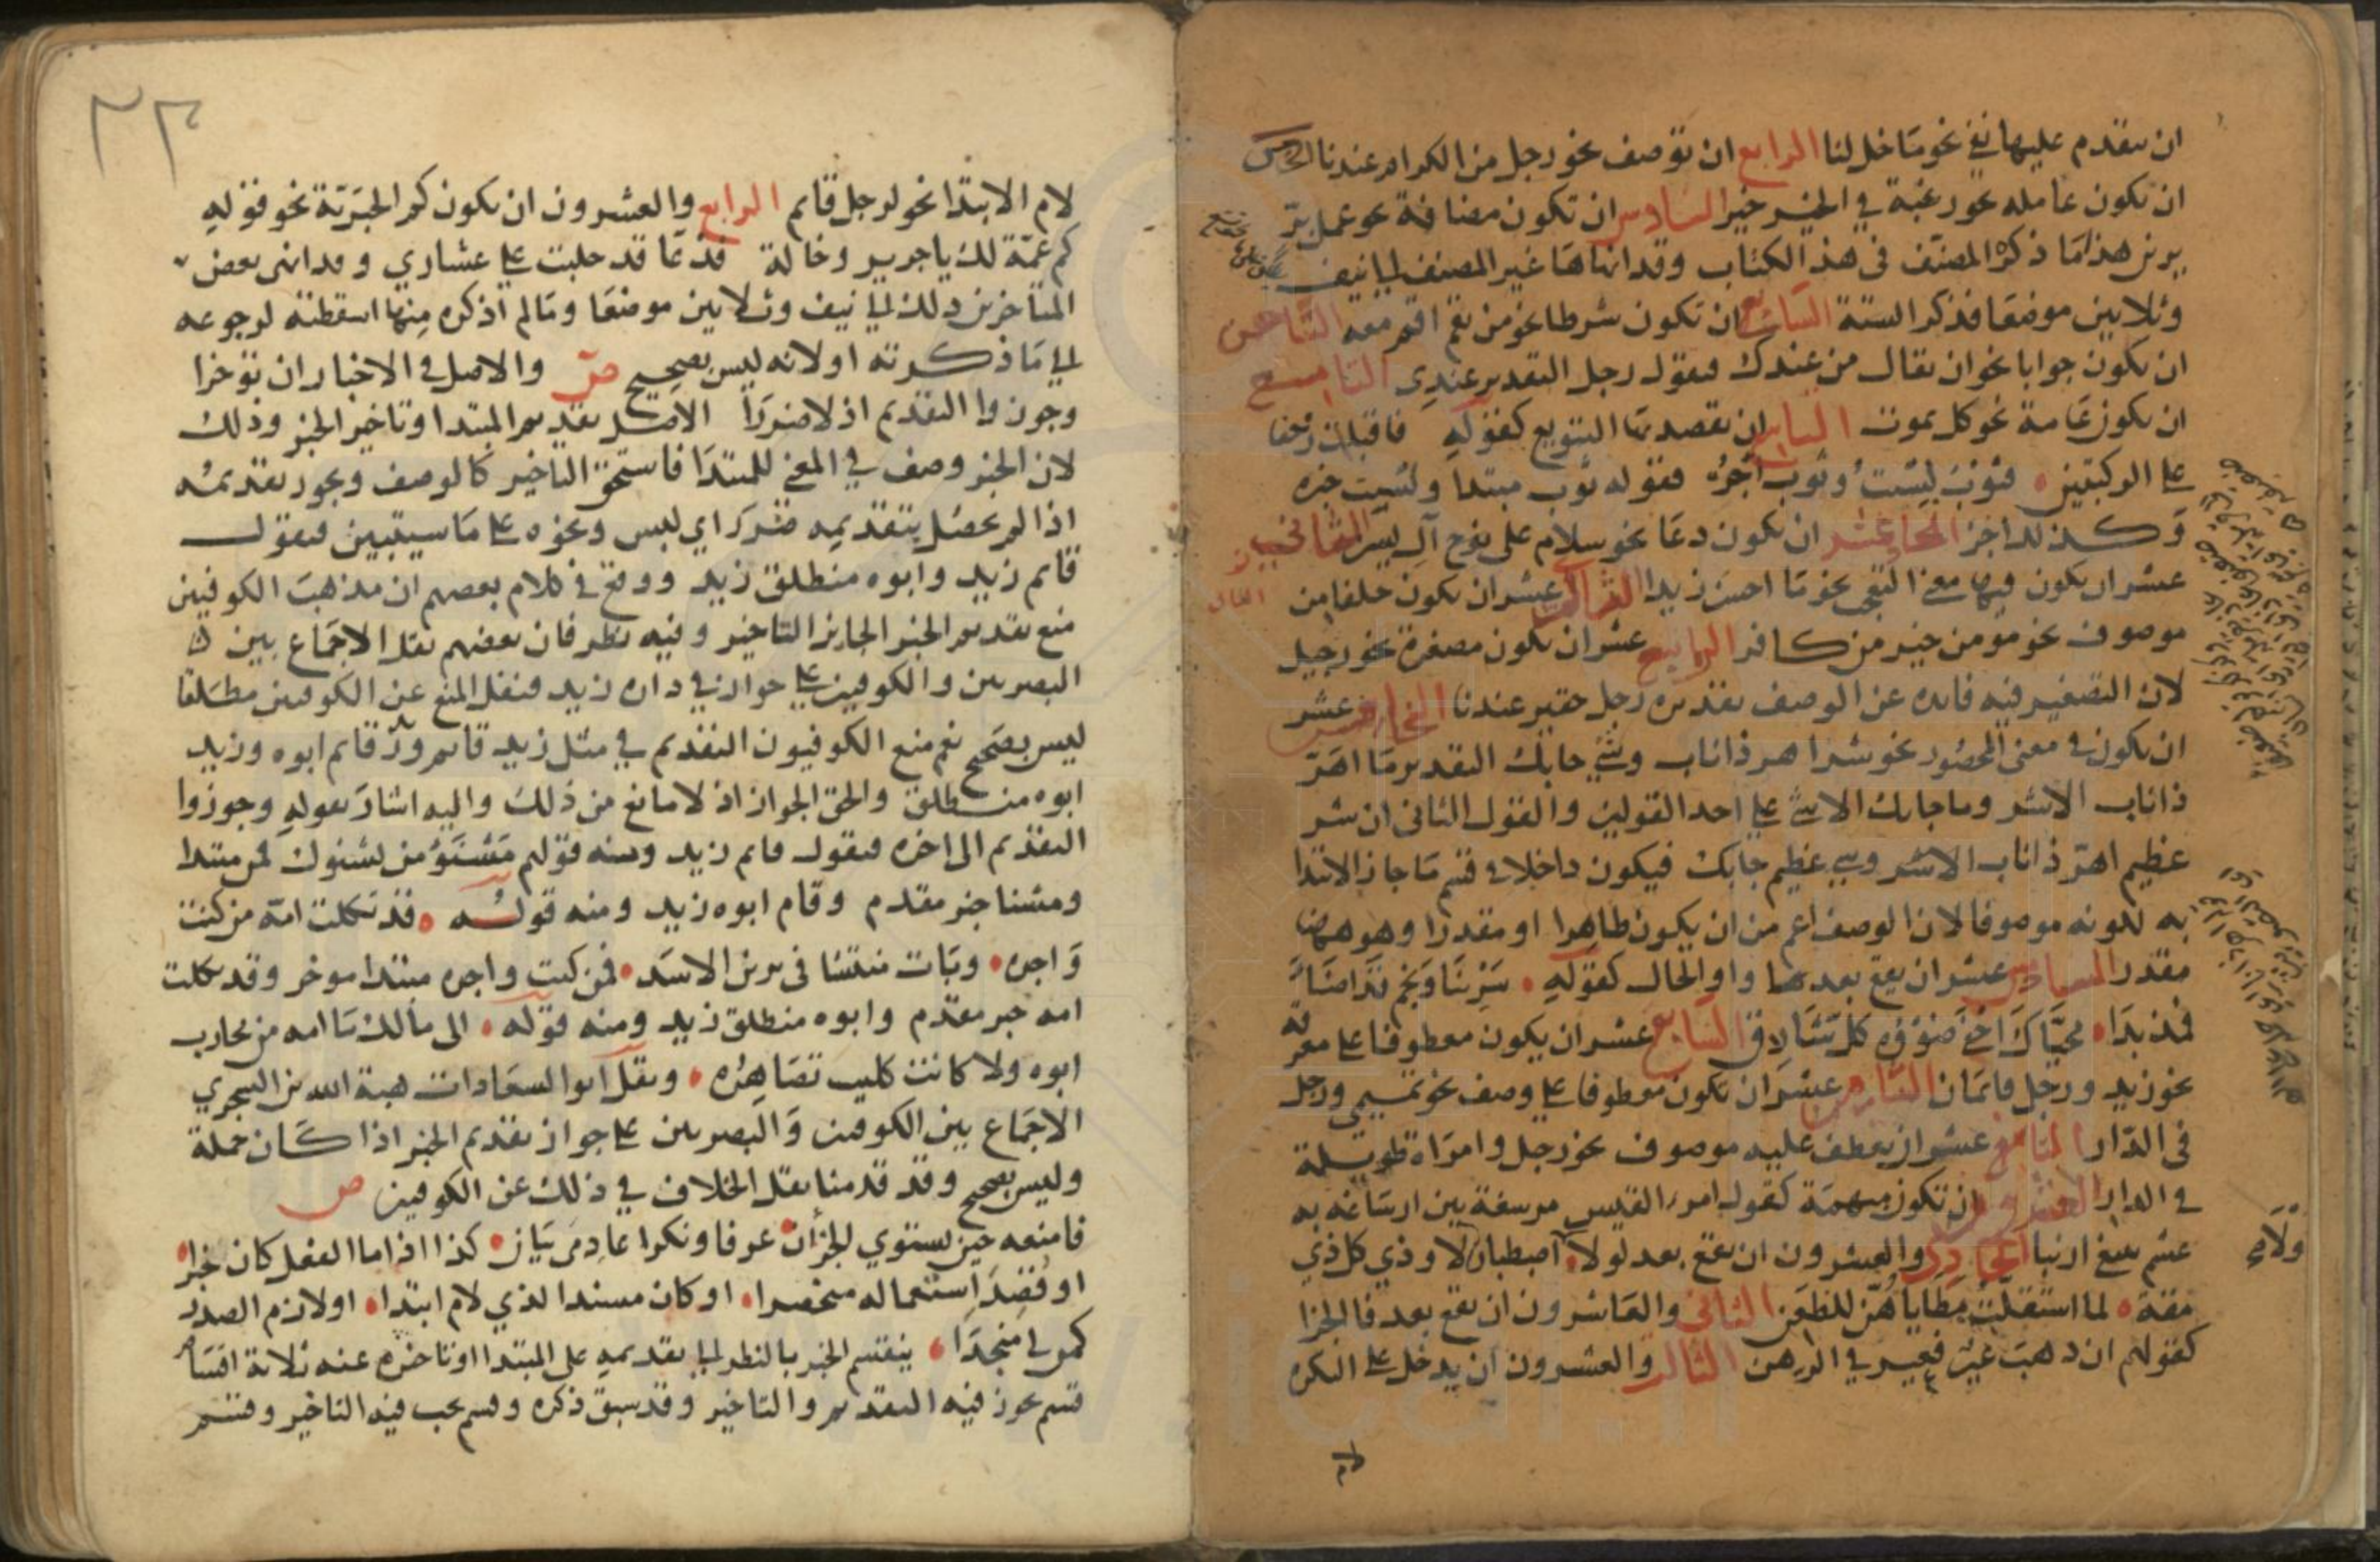 ان يتقدم عليها نفي نحو ما خل لنا الرابع ان توصف نحو رجل من الكرام عندنا الخامس
ان تكون عامله نحو رغبة في الخير خير السادس ان تكون مضافة نحو عمل بر
يزين هذا ما ذكره المصنف في هذا الكتاب وقد انهاها غير المصنف الي نيف
وثلاثين موضعا فذكر الستة السابع ان تكون شرطا نحو من يقم اقم معه الثامن
ان يكون جوابا نحو ان يقال من عندك فيقول رجل التقدير عندي التاسع
ان يكون عامة نحو كل يموت العاشر ان يقصد بها التنويع كقوله فاقبلت زحفا
على الركبتين فثوب لبست وثوب اجر فقوله ثوب مبتدا ولبست خبره
وكذلك اجر الحادي عشر ان يكون دعا نحو سلام على نوح آل يس الثاني
عشر ان يكون فيها معنى التعجب نحو ما احسن زيدا الثالث عشر ان يكون خلفا من
موصوف نحو مومن خير من كافر الرابع عشر ان يكون مصغرة نحو رجيل
لان التصغير فيه فايدة عن الوصف تقديره رجل حقير عندنا الخامس عشر
ان يكون في معنى المحصور نحو شر اهر ذا ناب وشئ جا بك التقدير ما اهر
ذا ناب الا شر وما جا بك الا شئ على احد القولين والقول الثاني ان شر
عظيم اهر ذا ناب الا شر وشي عظيم جا بك فيكون داخلا في قسم ما جاز الابتدا
به لكونه موصوفا لان الوصف اعم من ان يكون ظاهرا او مقدرا وهو ههنا
مقدر السادس عشر ان يقع بعدها واو الحال كقوله سرينا ونجم قد اضاء
فمذ بدا محياك اخفى ضوؤه كل شارق السابع عشر ان يكون معطوفا على معرفة
نحو زيد ورجل قايمان الثامن عشر ان يكون معطوفا على وصف نحو تميمي ورجل
في الدار التاسع عشر ان يعطف عليه موصوف نحو رجل وامراة طويلة
في الدار العشرون ان تكون مبهمة كقول امرء القيس مرسغة بين ارساغه به
عسم يبتغي ارنبا الحادي والعشرون ان تقع بعد لولا لولا اصطبار لاودي كل ذي
مقة لما استقلت مطاياهن للظعن الثاني والعشرون ان تقع بعد فا الجزا
كقولهم ان ذهب عير فعير في الرهن الثالث والعشرون ان يدخل على النكرة
لام
لام الابتدا نحو لرجل قايم الرابع والعشرون ان يكون كم الخبرية نحو قوله
كم عمة لك يا جرير وخالة فدعا قد حلبت على عشاري وقد انهى بعض
المتاخرين ذلك الي نيف وثلاثين موضعا وما لم اذكره منها اسقطته لرجوعه
الي ما ذكرته او لانه ليس بصحيح ص والاصل في الاخبار ان توخرا
وجوزوا التقديم اذ لا ضررا الاصل تقديم المبتدا وتاخير الخبر وذلك
لان الخبر وصف في المعنى للمبتدا فاستحق التاخير كالوصف ويجوز تقديمه
اذا لم يحصل بتقديمه ضرر اي لبس ونحوه على ما سيتبين فيقول
قايم زيد وابوه منطلق زيد ووقع في كلام بعضهم ان مذهب الكوفيين
منع تقديم الخبر الجايز التاخير وفيه نظر فان بعضهم نقل الاجماع بين
البصريين والكوفيين على جواز في داره زيد فنقل المنع عن الكوفيين مطلقا
ليس بصحيح نعم منع الكوفيون التقديم في مثل زيد قايم وزيد قايم ابوه وزيد
ابوه منطلق والحق الجواز اذ لا مانع من ذلك واليه اشار بقوله وجوزوا
التقديم الى اخره فيقول قايم زيد ومنه قولهم مشنوء من يشنوك فمن مبتدا
ومشنا خبر مقدم وقام ابوه زيد ومنه قوله قد ثكلت امه من كنت
واجده وبات منتشبا في برثن الاسد فمن كنت واجده مبتدا موخر وقد ثكلت
امه خبر مقدم وابوه منطلق زيد ومنه قوله الى مالك ما امه من محارب
ابوه ولا كانت كليب تصاهره ونقل ابو السعادات هبة الله بن الشجري
الاجماع بين الكوفيين والبصريين على جواز تقديم الخبر اذا كان جملة
وليس بصحيح وقد قدمنا نقل الخلاف في ذلك عن الكوفيين ص
فامنعه حين يستوي الجزان عرفا ونكرا عادمي بيان كذا اذا ما الفعل كان خبرا
او قصد استعماله منحصرا او كان مسندا لذي لام ابتدا او لازم الصدر
كمن لي منجدا ينقسم الخبر بالنظر الي تقديمه على المبتدا او تاخيره عنه ثلاثة اقسام
قسم يجوز فيه التقديم والتاخير وقد سبق ذكره وقسم يجب فيه التاخير وقسم